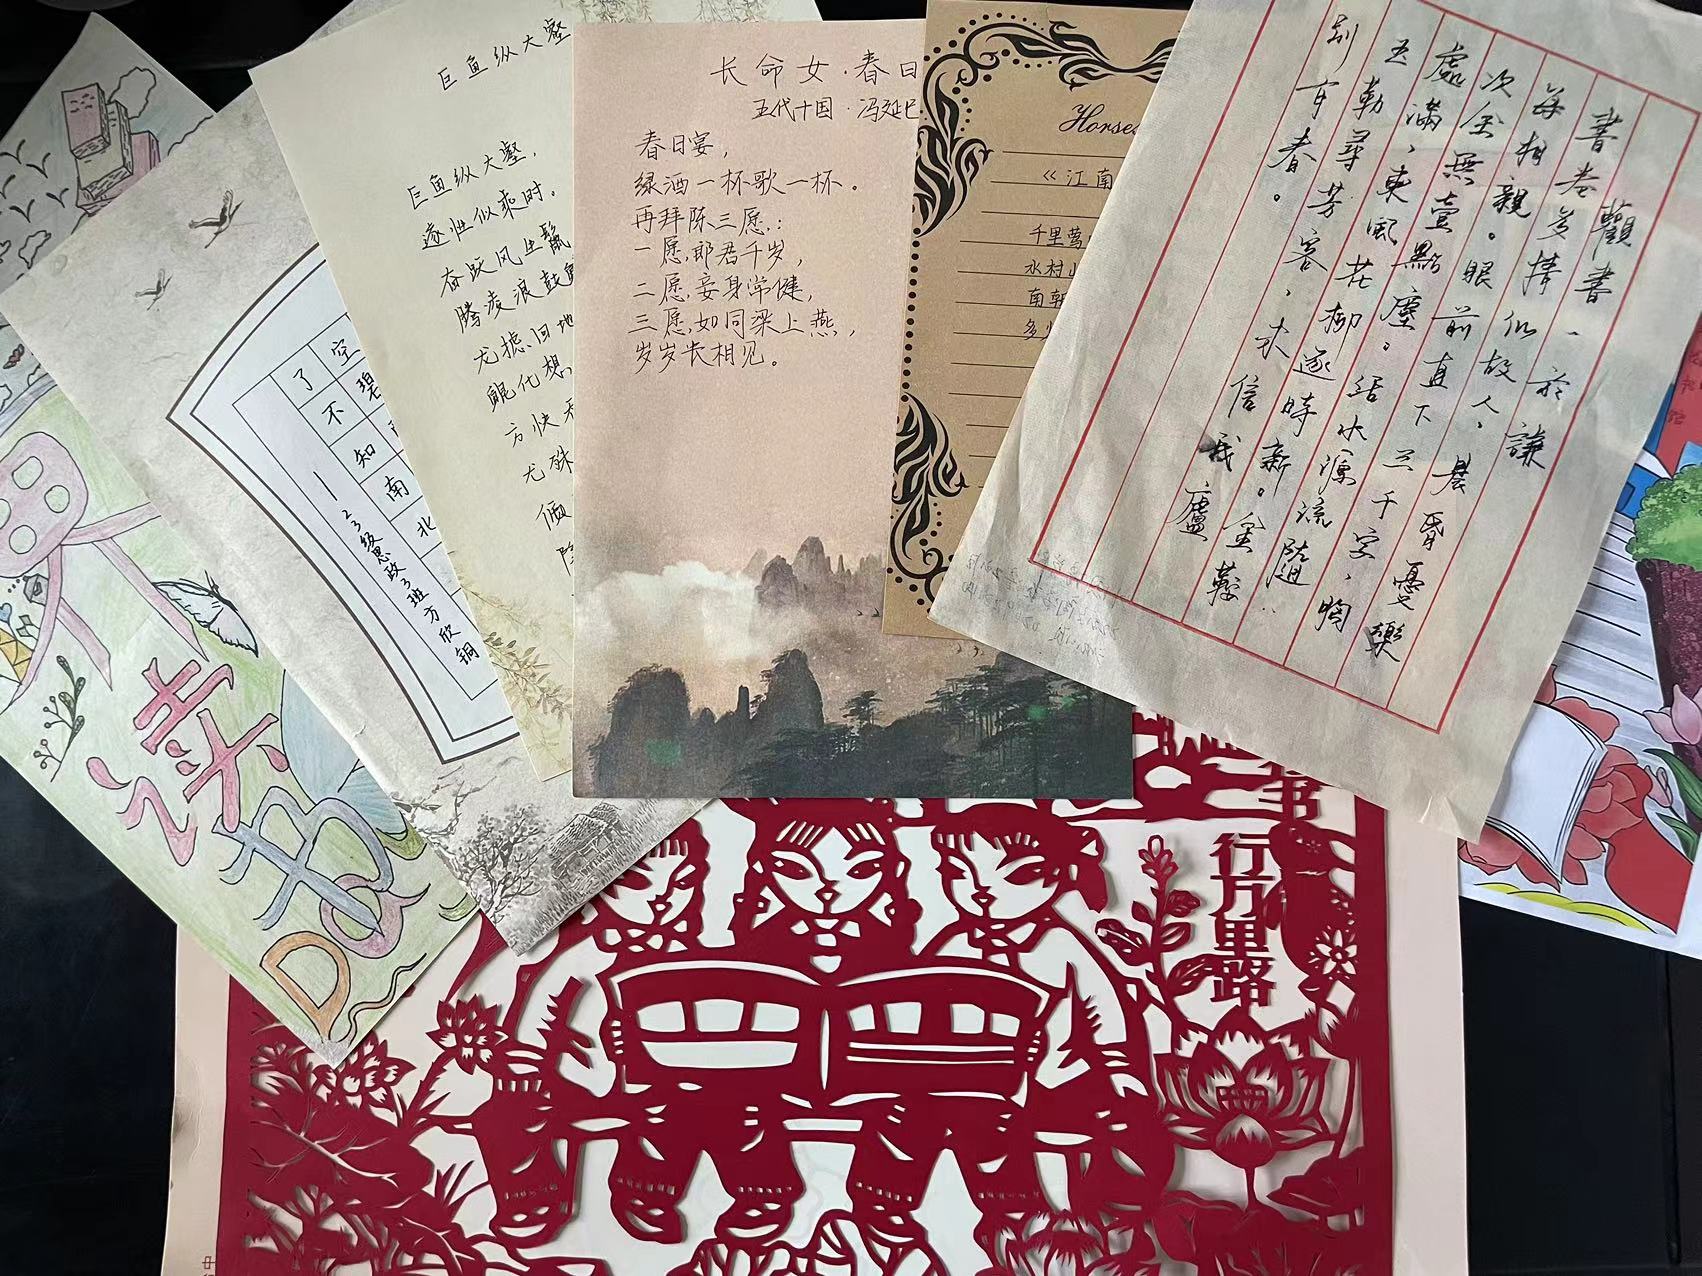 界
读书
Da
空碧
了不知南北
—23级思政3班方欣铜
巨鱼纵大壑
巨鱼纵大壑，
遂性似乘时。
奋跃风生鬣
腾凌浪鼓
龙摅回地
鲲化想
方快
尤殊
长命女·春日
五代十国·冯延巳
春日宴，
绿酒一杯歌一杯。
再拜陈三愿：
一愿，郎君千岁，
二愿，妾身常健，
三愿，如同梁上燕，
岁岁长相见。
Horses
《江南
千里莺
水村山
南朝
多少
觀書一於謙
書卷多情似故人，晨昏憂樂
每相親。眼前直下三千字，胸
次全無壹點塵。活水源流隨
處滿，東風花柳逐時新。金鞍
玉勒尋芳客，未信我廬
别有春。
书
行万里路